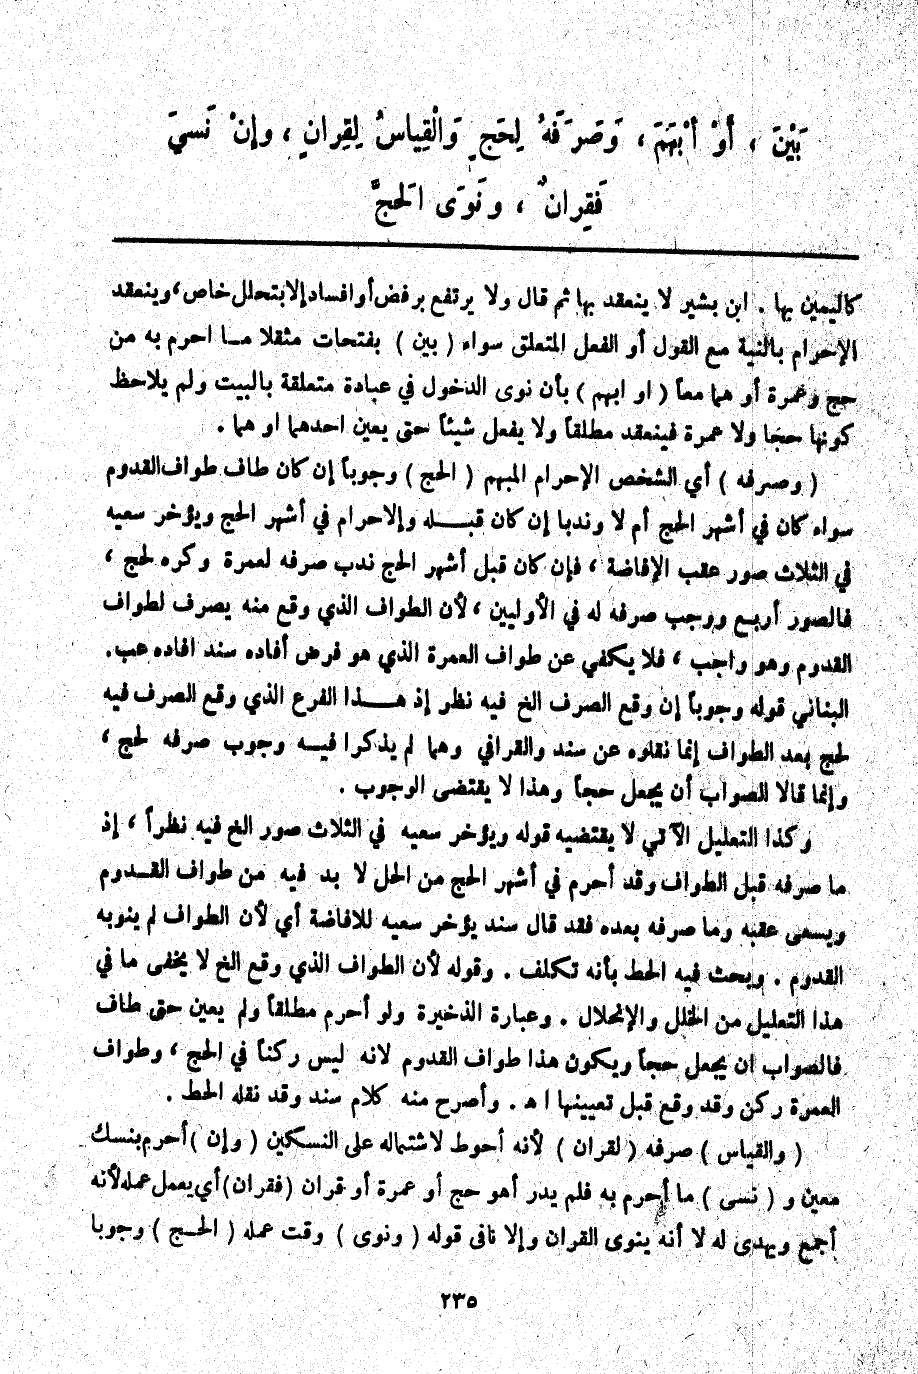 بَيَّنَ ، أَوْ أَبْهَمَ ، وَصَرَفَهُ لِحَجٍ وَالْقِيَاسُ لِقِرانٍ ، وإنْ نَسيَ
فَقِرانٌ ، ونَوَى الحَجَّ
كاليمين بها . ابن بشير لا ينعقد بها ثم قال ولا يرتفع برفض أوافساد إلابتحلل خاص ، وينعقد
الإحرام بالنية مع القول أو الفعل المتعلق سواء ( بين ) بفتحات مثقلا مــا احرم به من
حج وعمرة أو هما معاً ( او ابهم ) بأن نوى الدخول في عبادة متعلقة بالبيت ولم يلاحظ
كونها حجا ولا عمرة فينعقد مطلقاً ولا يفعل شيئاً حتى يعين احدهما او هما .
( وصرفه ) أي الشخص الإحرام المبهم ( الحج ) وجوباً إن كان طاف طواف القدوم
سواء كان في أشهر الحج أم لا وندبا إن كان قبــله والاحرام في أشهر الحج ويؤخر سعيه
في الثلاث صور عقب الإفاضة ، فإن كان قبل أشهر الحج ندب صرفه لعمرة وكره لحج ،
فالصور أربع ووجب صرفه له في الأوليين ، لأن الطواف الذي وقع منه يصرف لطواف
القدوم وهو واجب ، فلا يكفي عن طواف العمرة الذي هو فرض أفاده سند افاده عب .
البناني قوله وجوباً إن وقع الصرف الخ فيه نظر إذ هــذا الفرع الذي وقع الصرف فيه
لحج بعد الطواف إنما نقلوه عن سند والقرافي وهما لم يذكرا فيــه وجوب صرفه لحج ،
وإنما قالا الصواب أن يجعل حجاً وهذا لا يقتضى الوجوب .
وكذا التعليل الآتي لا يقتضيه قوله ويؤخر سعيه في الثلاث صور الخ فيه نظراً ، إذ
ما صرفه قبل الطواف وقد أحرم في أشهر الحج من الحل لا بد فيه من طواف القــدوم
ويسعى عقبه وما صرفه بعده فقد قال سند يؤخر سعيه للافاضة أي لأن الطواف لم ينوبه
القدوم . وبحث فيه الحط بأنه تكلف . وقوله لأن الطواف الذي وقع الخ لا يخفى ما في
هذا التعليل من الخلل والإنحلال . وعبارة الذخيرة ولو أحرم مطلقاً ولم يعين حتى طاف
فالصواب ان يجعل حجاً ويكون هذا طواف القدوم لانه ليس ركناً في الحج ، وطواف
العمرة ركن وقد وقع قبل تعيينها ا ه . وأصرح منه كلام سند وقد نقله الحط .
( والقياس ) صرفه ( لقران ) لأنه أحوط لاشتماله على النسكين ( وإن ) أحرم بنسك
معين و ( نسى ) ما أحرم به فلم يدر أهو حج أو عمرة أو قران ( فقران ) أي يعمل عمله لأنه
أجمع ويهدى له لا أنه ينوى القران وإلا نافى قوله ( ونوى ) وقت عمله ( الحــج ) وجوبا
٢٣٥